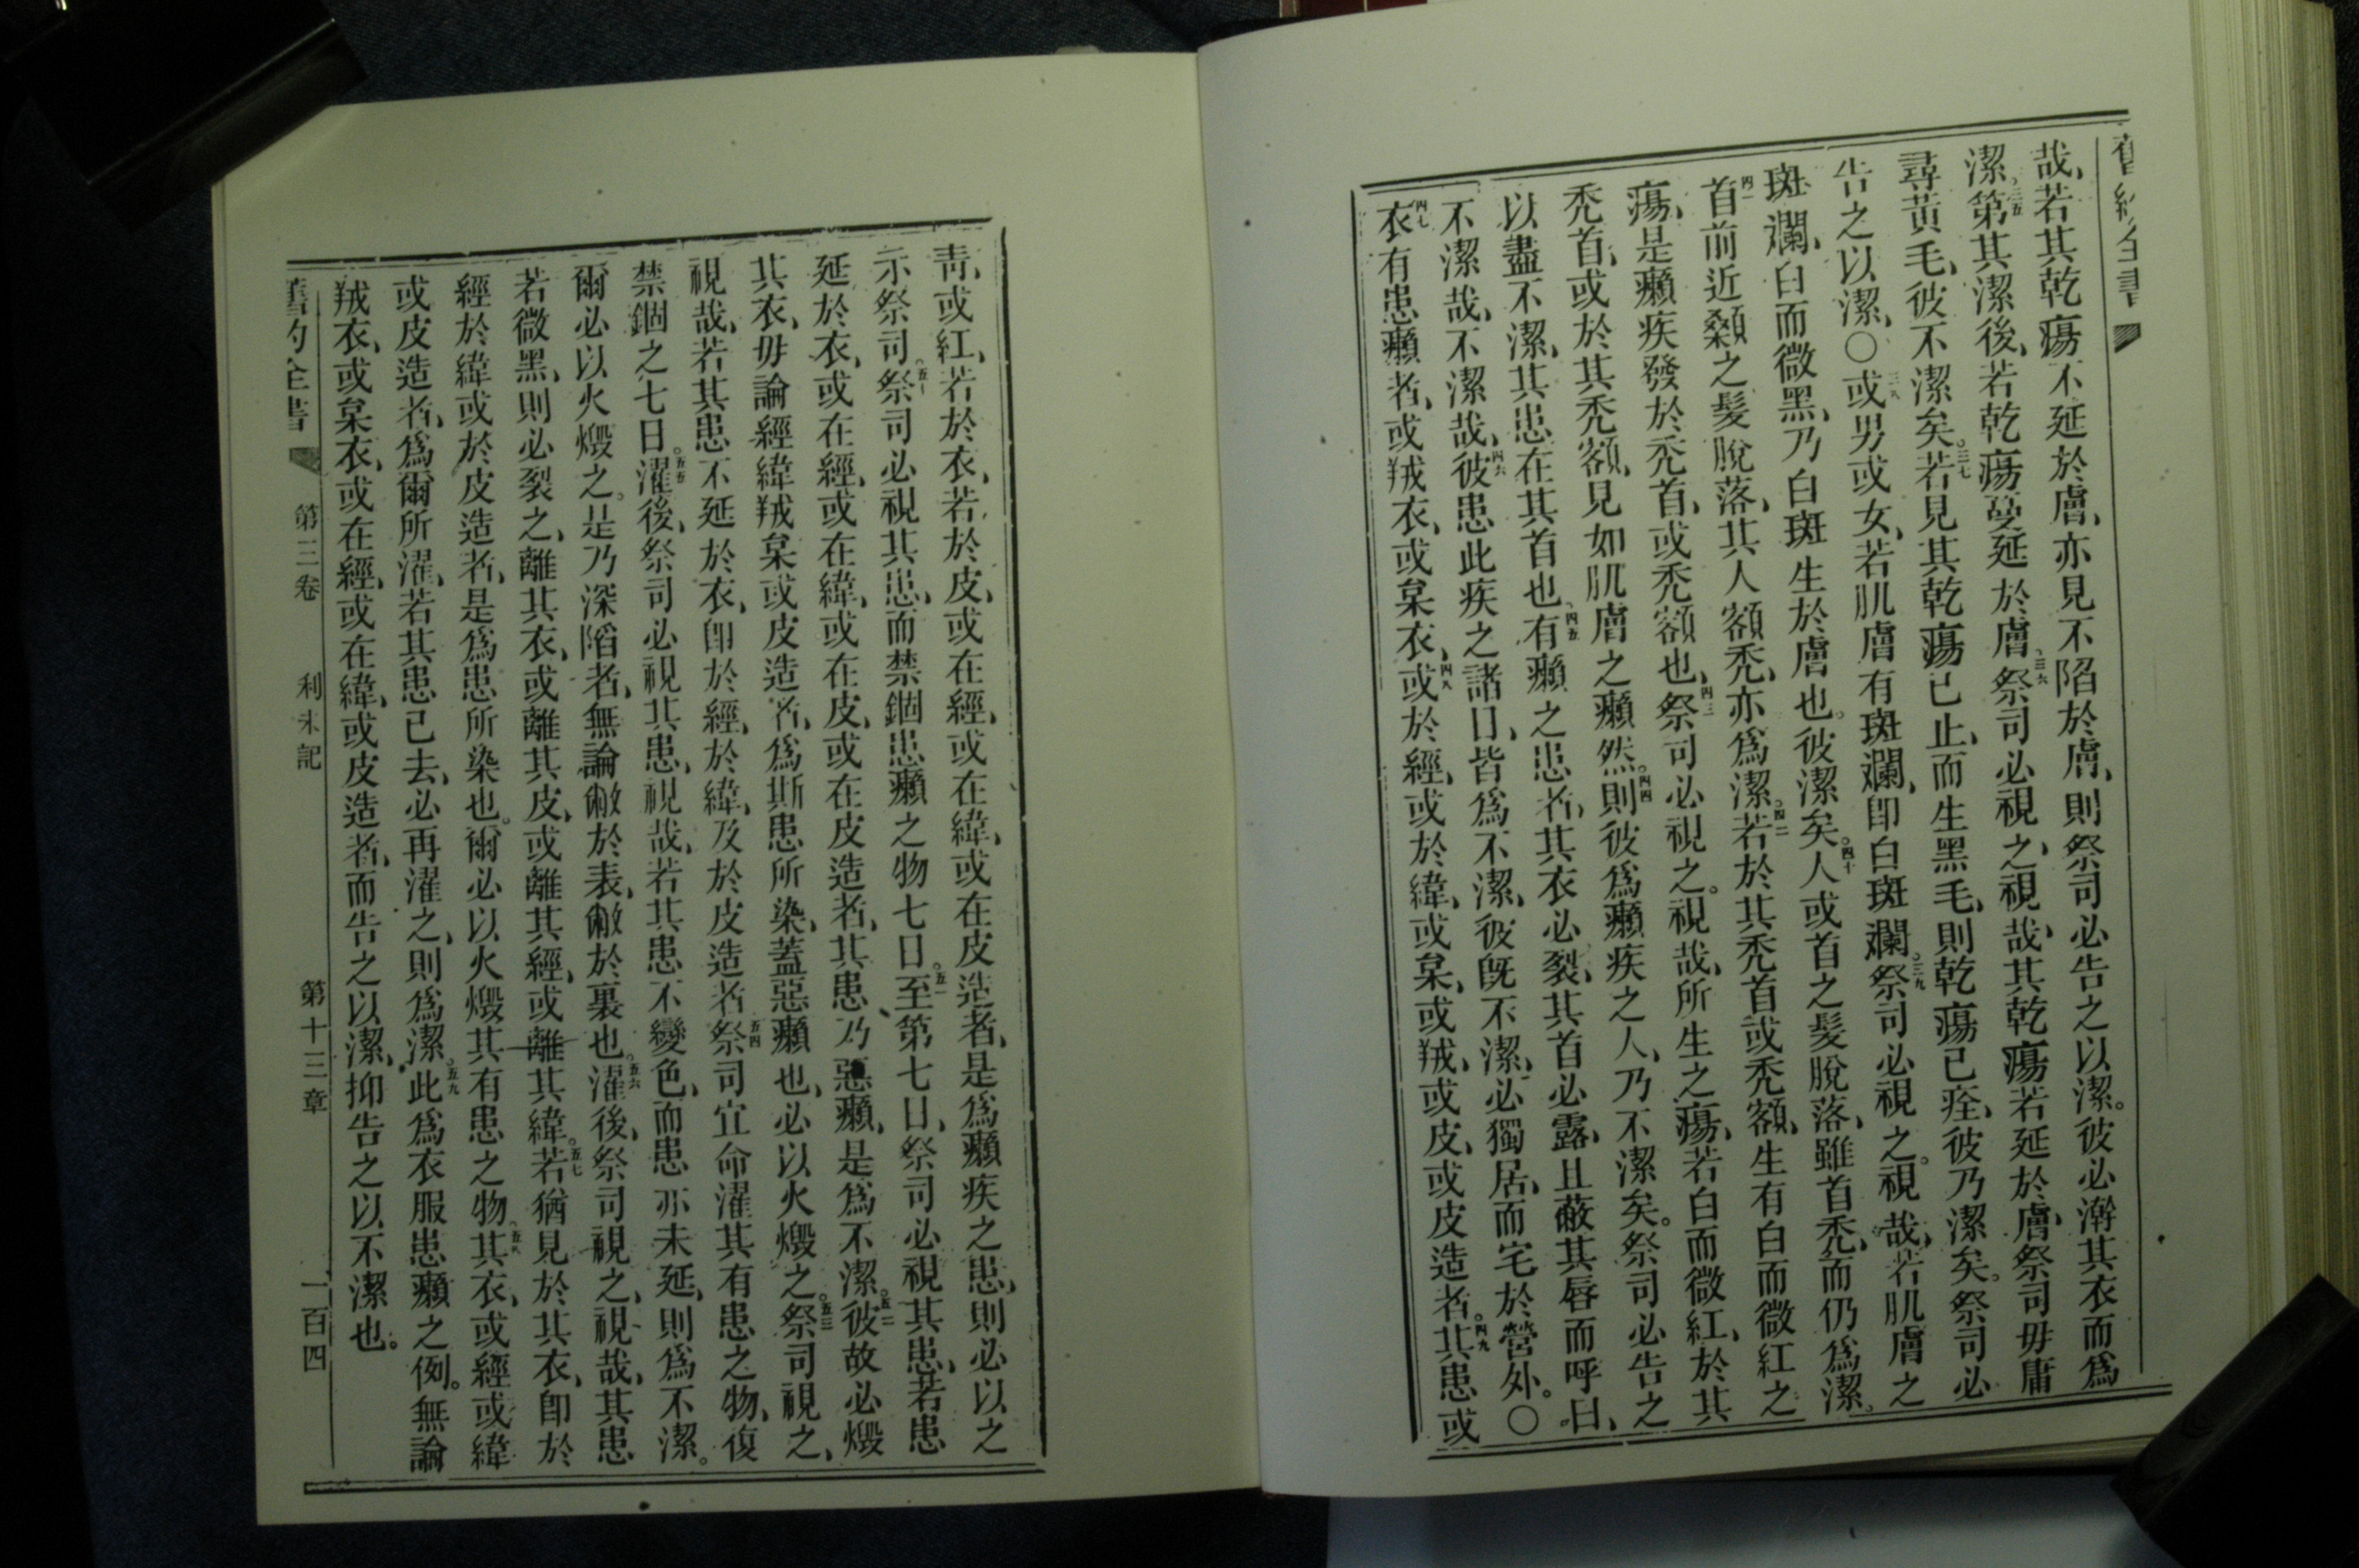 舊約全書
哉、若其乾瘍不延於膚、亦見不陷於膚、則祭司必告之以潔。彼必澣其衣而爲
潔。三五第其潔後、若乾瘍蔓延於膚、三六祭司必視之、視哉、其乾瘍若延於膚、祭司毋庸
尋黃毛、彼不潔矣。三七若見其乾瘍已止、而生黑毛、則乾瘍已痊、彼乃潔矣。祭司必
告之以潔、〇三八或男或女、若肌膚有斑斕、卽白斑斕。三九祭司必視之。視哉、若肌膚之
斑斕、白而微黑、乃白斑生於膚也。彼潔矣。四十人或首之髮脫落、雖首禿、而仍爲潔。
四一首前近顙之髮脫落、其人額禿、亦爲潔。四二若於其禿首或禿額、生有白而微紅之
瘍、是癩疾發於禿首、或禿額也、四三祭司必視之。視哉、所生之瘍、若白而微紅、於其
禿首、或於其禿額、見如肌膚之癩然。四四則彼爲癩疾之人、乃不潔矣。祭司必告之
以盡不潔、其患在其首也、四五有癩之患者、其衣必裂、其首必露、且蔽其唇而呼曰、
不潔哉、不潔哉、四六彼患此疾之諸日、皆爲不潔、彼旣不潔、必獨居、而宅於營外。〇
四七衣有患癩者、或羢衣、或枲衣、四八或於經、或於緯、或枲、或羢、或皮、或皮造者。四九其患或
靑、或紅、若於衣、若於皮、或在經、或在緯、或在皮造者、是爲癩疾之患、則必以之
示祭司。五十祭司必視其患、而禁錮患癩之物七日。五一至第七日、祭司必視其患、若患
延於衣、或在經、或在緯、或在皮、或在皮造者、其患乃惡癩、是爲不潔。五二彼故必燬
其衣、毋論經緯羢枲或皮造者、爲斯患所染、蓋惡癩也、必以火燬之。五三祭司視之、
視哉、若其患不延於衣、卽於經、於緯、及於皮造者五四祭司宜命濯其有患之物、復
禁錮之七日。五五濯後、祭司必視其患、視哉、若其患不變色、而患亦未延、則爲不潔。
爾必以火燬之。是乃深陷者、無論敝於表、敝於裏也。五六濯後、祭司視之、視哉、其患
若微黑、則必裂之、離其衣、或離其皮、或離其經、或離其緯。五七若猶見於其衣、卽於
經於緯或於皮造者、是爲患所染也。爾必以火燬其有患之物、五八其衣、或經或緯
或皮造者、爲爾所濯、若其患已去、必再濯之、則爲潔。五九此爲衣服患癩之例。無論
羢衣、或枲衣、或在經、或在緯、或皮造者、而告之以潔、抑告之以不潔也。
舊約全書 第三卷 利未記 第十三章 一百四